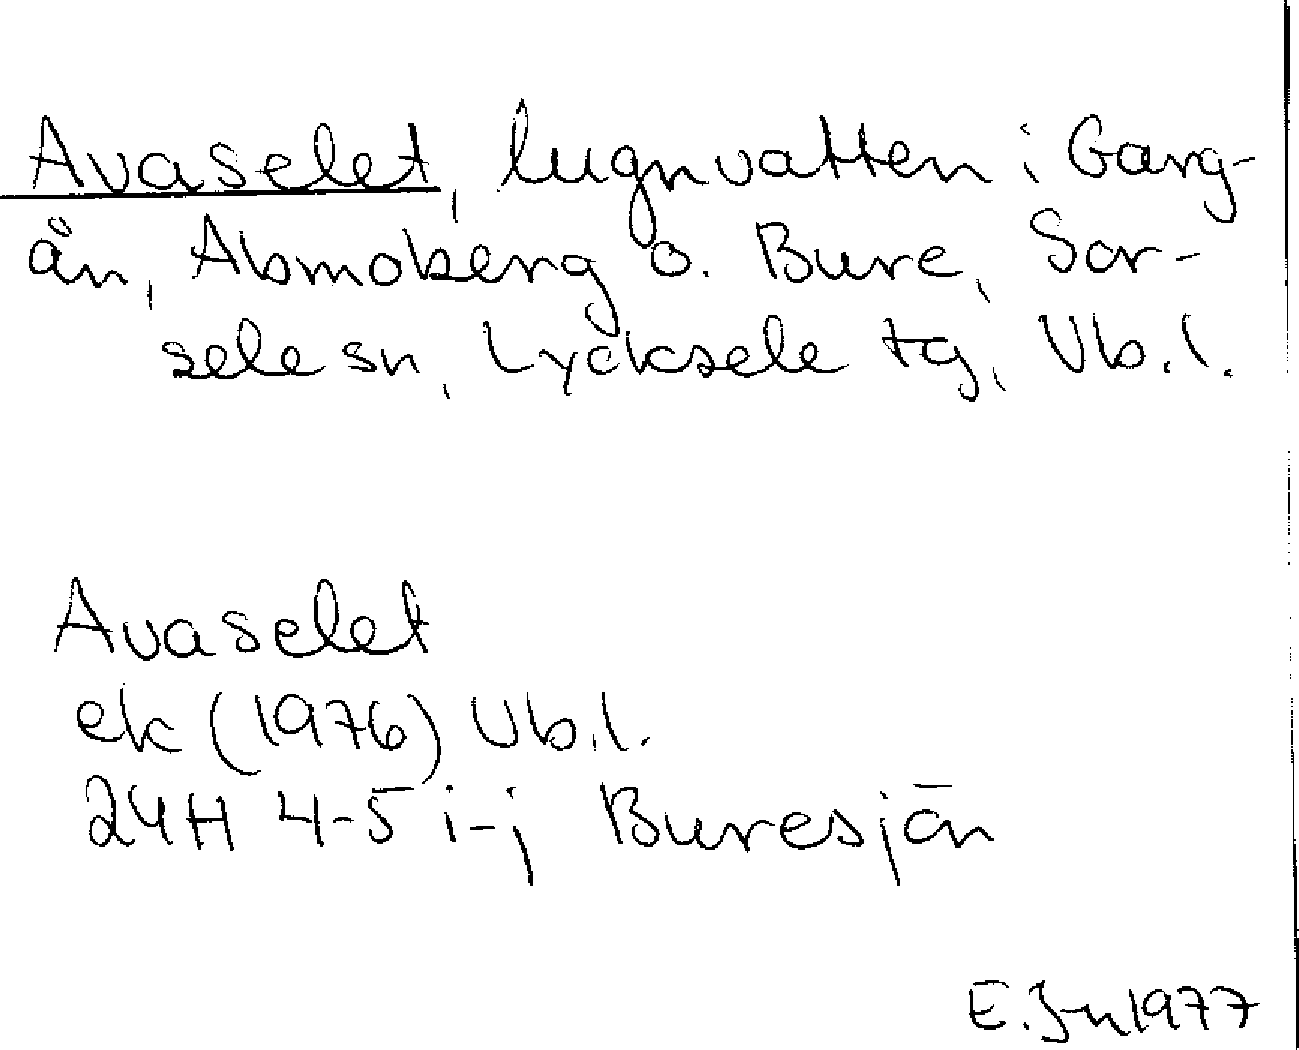 Avaselet, lugnvatten i Garg-
ån, Abmoberg o. Bure, Sor-
sele sn, Lycksele tg, Vb.l.
Avaselet
ek (1976) Vb.l.
24H 4-5 i-j Buresjön
E. Jn 1977